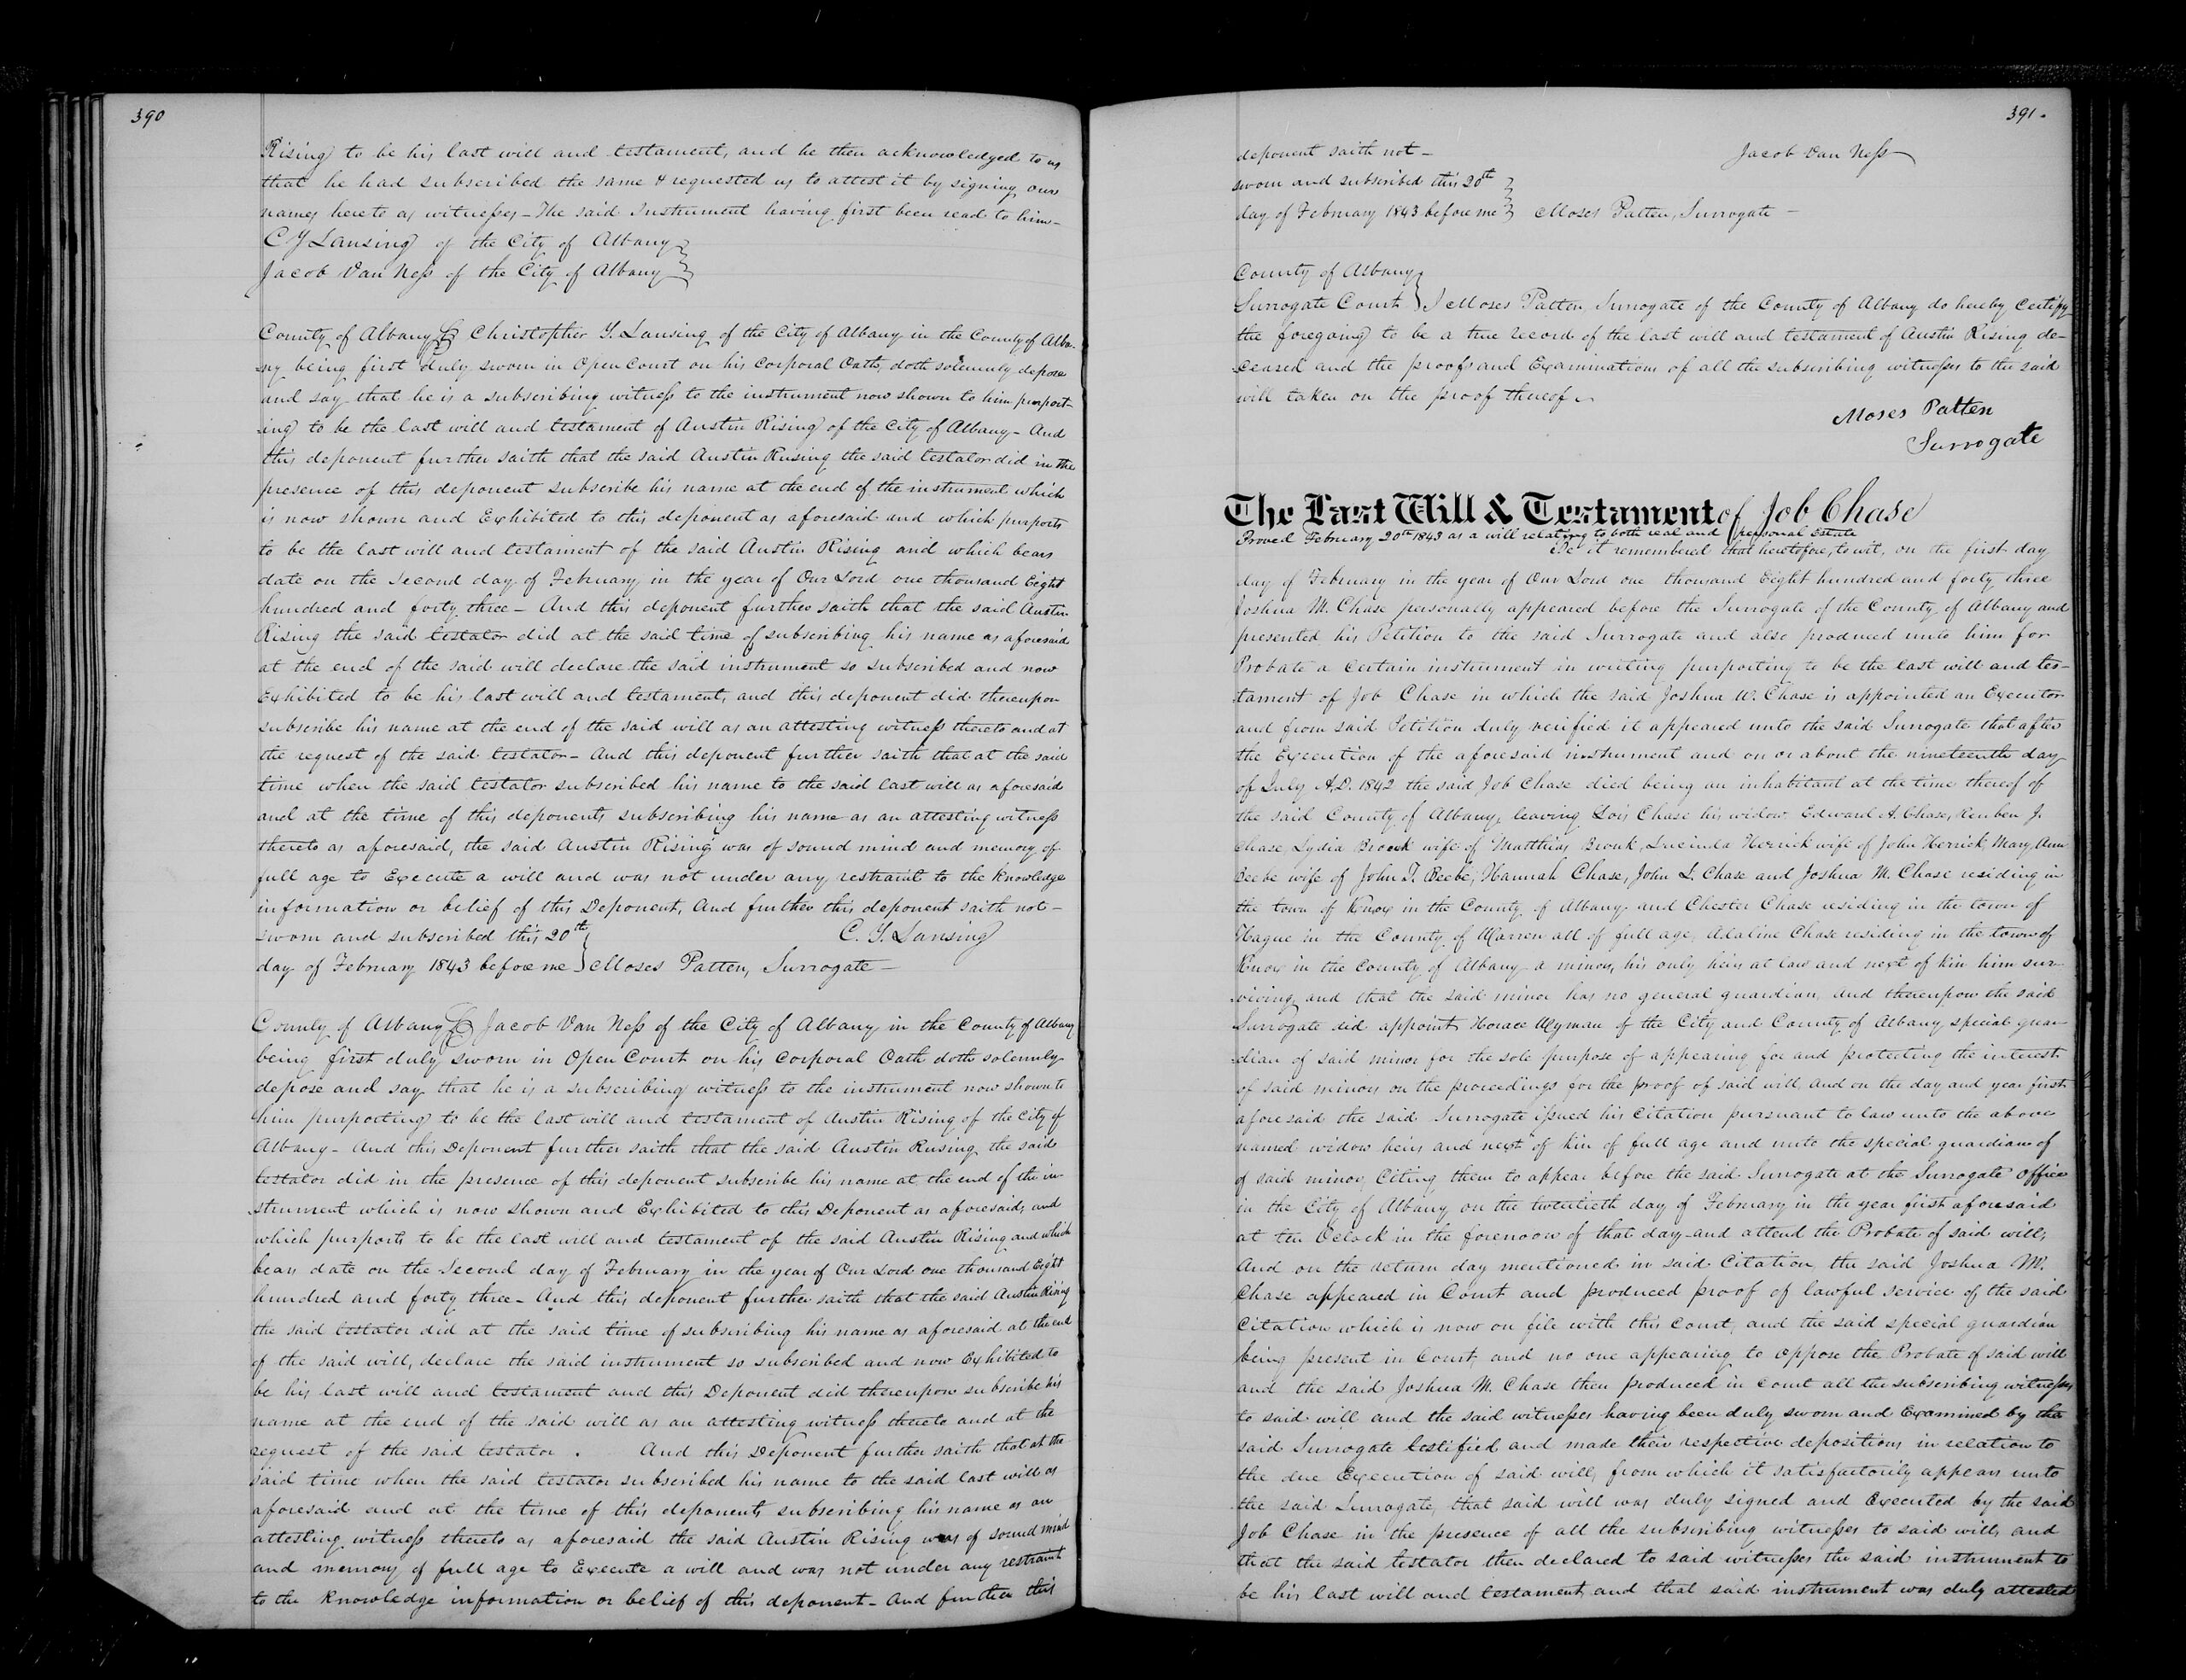 390
Rising to be his last will and testament, and he then acknowledged to us
that he had subscribed the same & requested us to attest it by signing our
names hereto as witnesses – The said Instrument having first been read to him –
C Y Lansing of the City of Albany
Jacob Van Ness of the City of Albany
County of Albany SS Christopher Y. Lansing of the City of Albany in the County of Alba-
ny being first duly sworn in Open Court on his Corporal Oath, doth solemnly depose
and say that he is a subscribing witness to the instrument now shown to him purport-
ing to be the last will and testament of Austin Rising of the City of Albany – And
this deponent further saith that the said Austin Rising the said testator did in the
presence of this deponent subscribe his name at the end of the instrument which
is now shown and Exhibited to this deponent as aforesaid and which purports
to be the last will and testament of the said Austin Rising and which bears
date on the Second day of February in the year of Our Lord one thousand Eight
hundred and forty three – And this deponent further saith that the said Austin
Rising the said testator did at the said time of subscribing his name as aforesaid
at the end of the said will declare the said instrument so subscribed and now
Exhibited to be his last will and testament, and this deponent did thereupon
subscribe his name at the end of the said will as an attesting witness thereto and at
the request of the said testator – And this deponent further saith that at the said
time when the said testator subscribed his name to the said last will as aforesaid
and at the time of this deponents subscribing his name as an attesting witness
thereto as aforesaid, the said Austin Rising was of sound mind and memory of
full age to Execute a will and was not under any restraint to the knowledge
information or belief of this Deponent, And further this deponent saith not –
sworn and subscribed this 20th C. Y. Lansing
day of February 1843 before me Moses Patten, Surrogate –
County of Albany SS Jacob Van Ness of the City of Albany in the County of Albany
being first duly sworn in Open Court on his Corporal Oath doth solemnly
depose and say that he is a subscribing witness to the instrument now shown to
him purporting to be the last will and testament of Austin Rising of the City of
Albany – And this Deponent further saith that the said Austin Rising the said
testator did in the presence of this deponent subscribe his name at the end of the in-
strument which is now shown and Exhibited to this Deponent as aforesaid, and
which purports to be the last will and testament of the said Austin Rising and which
bears date on the Second day of February in the year of Our Lord one thousand Eight
hundred and forty three – And this deponent further saith that the said Austin Rising
the said testator did at the said time of subscribing his name as aforesaid at the end
of the said will, declare the said instrument so subscribed and now Exhibited to
be his last will and testament and this Deponent did thereupon subscribe his
name at the end of the said will as an attesting witness thereto and at the
request of the said testator . And this Deponent further saith that at the
said time when the said testator subscribed his name to the said last will as
aforesaid and at the time of this deponents subscribing his name as an
attesting witness thereto as aforesaid the said Austin Rising was of sound mind
and memory of full age to Execute a will and was not under any restraint
to the knowledge information or belief of this deponent – And further this
391.
deponent saith not – Jacob Van Ness
sworn and subscribed this 20th
day of February 1843 before me Moses Patten, Surrogate –
County of Albany
Surrogate Court I Moses Patten Surrogate of the County of Albany do hereby Certify
the foregoing to be a true record of the last will and testament of Austin Rising de-
ceased and the proofs and Examinations of all the subscribing witnesses to the said
will taken on the proof thereof –
Moses Patten
Surrogate
The Last Will & Testament of Job Chase
Proved February 20th 1843 as a will relating to both real and personal Estate
Be it remembered that heretofore, to wit, on the first day
day of February in the year of Our Lord one thousand Eight hundred and forty three
Joshua M. Chase personally appeared before the Surrogate of the County of Albany and
presented his Petition to the said Surrogate and also produced unto him for
Probate a Certain instrument in writing purporting to be the last will and tes-
tament of Job Chase in which the said Joshua W. Chase is appointed an Executor
and from said Petition duly verified it appeared unto the said Surrogate that after
the Execution of the aforesaid instrument and on or about the nineteenth day
of July A.D. 1842 the said Job Chase died being an inhabitant at the time thereof of
the said County of Albany, leaving Lois Chase his widow, Edward A. Chase, Reuben J.
Chase, Lydia Bronk wife of Matthias Bronk, Lucinda Herrick wife of John Herrick, Mary Ann
Beebe wife of John T. Beebe, Hannah Chase, John L. Chase and Joshua M. Chase residing in
the town of Knox in the County of Albany and Chester Chase residing in the town of
Hague in the County of Warren all of full age, Adaline Chase residing in the town of
Knox in the County of Albany a minor, his only heirs at law and next of kin him sur-
viving and that the said minor has no general guardian, and thereupon the said
Surrogate did appoint Horace Wyman of the City and County of Albany special guar-
dian of said minor for the sole purpose of appearing for and protecting the interest
of said minor on the proceedings for the proof of said will, and on the day and year first
aforesaid the said Surrogate issued his Citation pursuant to law unto the above
named widow heirs and next of kin of full age and unto the special guardian of
of said minor, Citing them to appear before the said Surrogate at the Surrogate office
in the City of Albany on the twentieth day of February in the year first aforesaid
at ten Oclock in the forenoon of that day and attend the Probate of said will,
And on the return day mentioned in said Citation, the said Joshua M.
Chase appeared in Court and produced proof of lawful service of the said
Citation which is now on file with this Court, and the said special guardian
being present in Court, and no one appearing to oppose the Probate of said will
and the said Joshua M. Chase then produced in Court all the subscribing witnesses
to said will and the said witnesses having been duly sworn and Examined by the
said Surrogate testified and made their respective depositions in relation to
the due Execution of said will, from which it satisfactorily appears unto
the said Surrogate, that said will was duly signed and Executed by the said
Job Chase in the presence of all the subscribing witnesses to said will, and
that the said testator then declared to said witnesses the said instrument to
be his last will and testament and that said instrument was duly attested